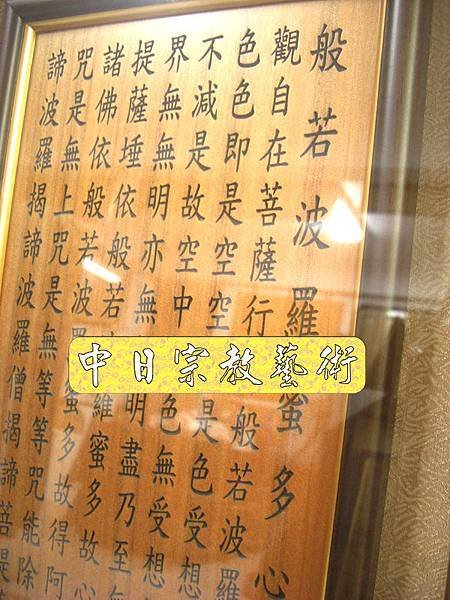 般若波羅蜜多心
觀自在菩薩行 般若波羅
色色即是空空 是色受想
不減是故空中 色無受想
界無無明亦無 明盡乃至無
提薩埵依般若 羅蜜多故心
諸佛依般若波羅蜜多故得阿
咒是無上咒是無等等咒能除
諦波羅揭諦波羅僧揭諦菩提
中日宗教藝術